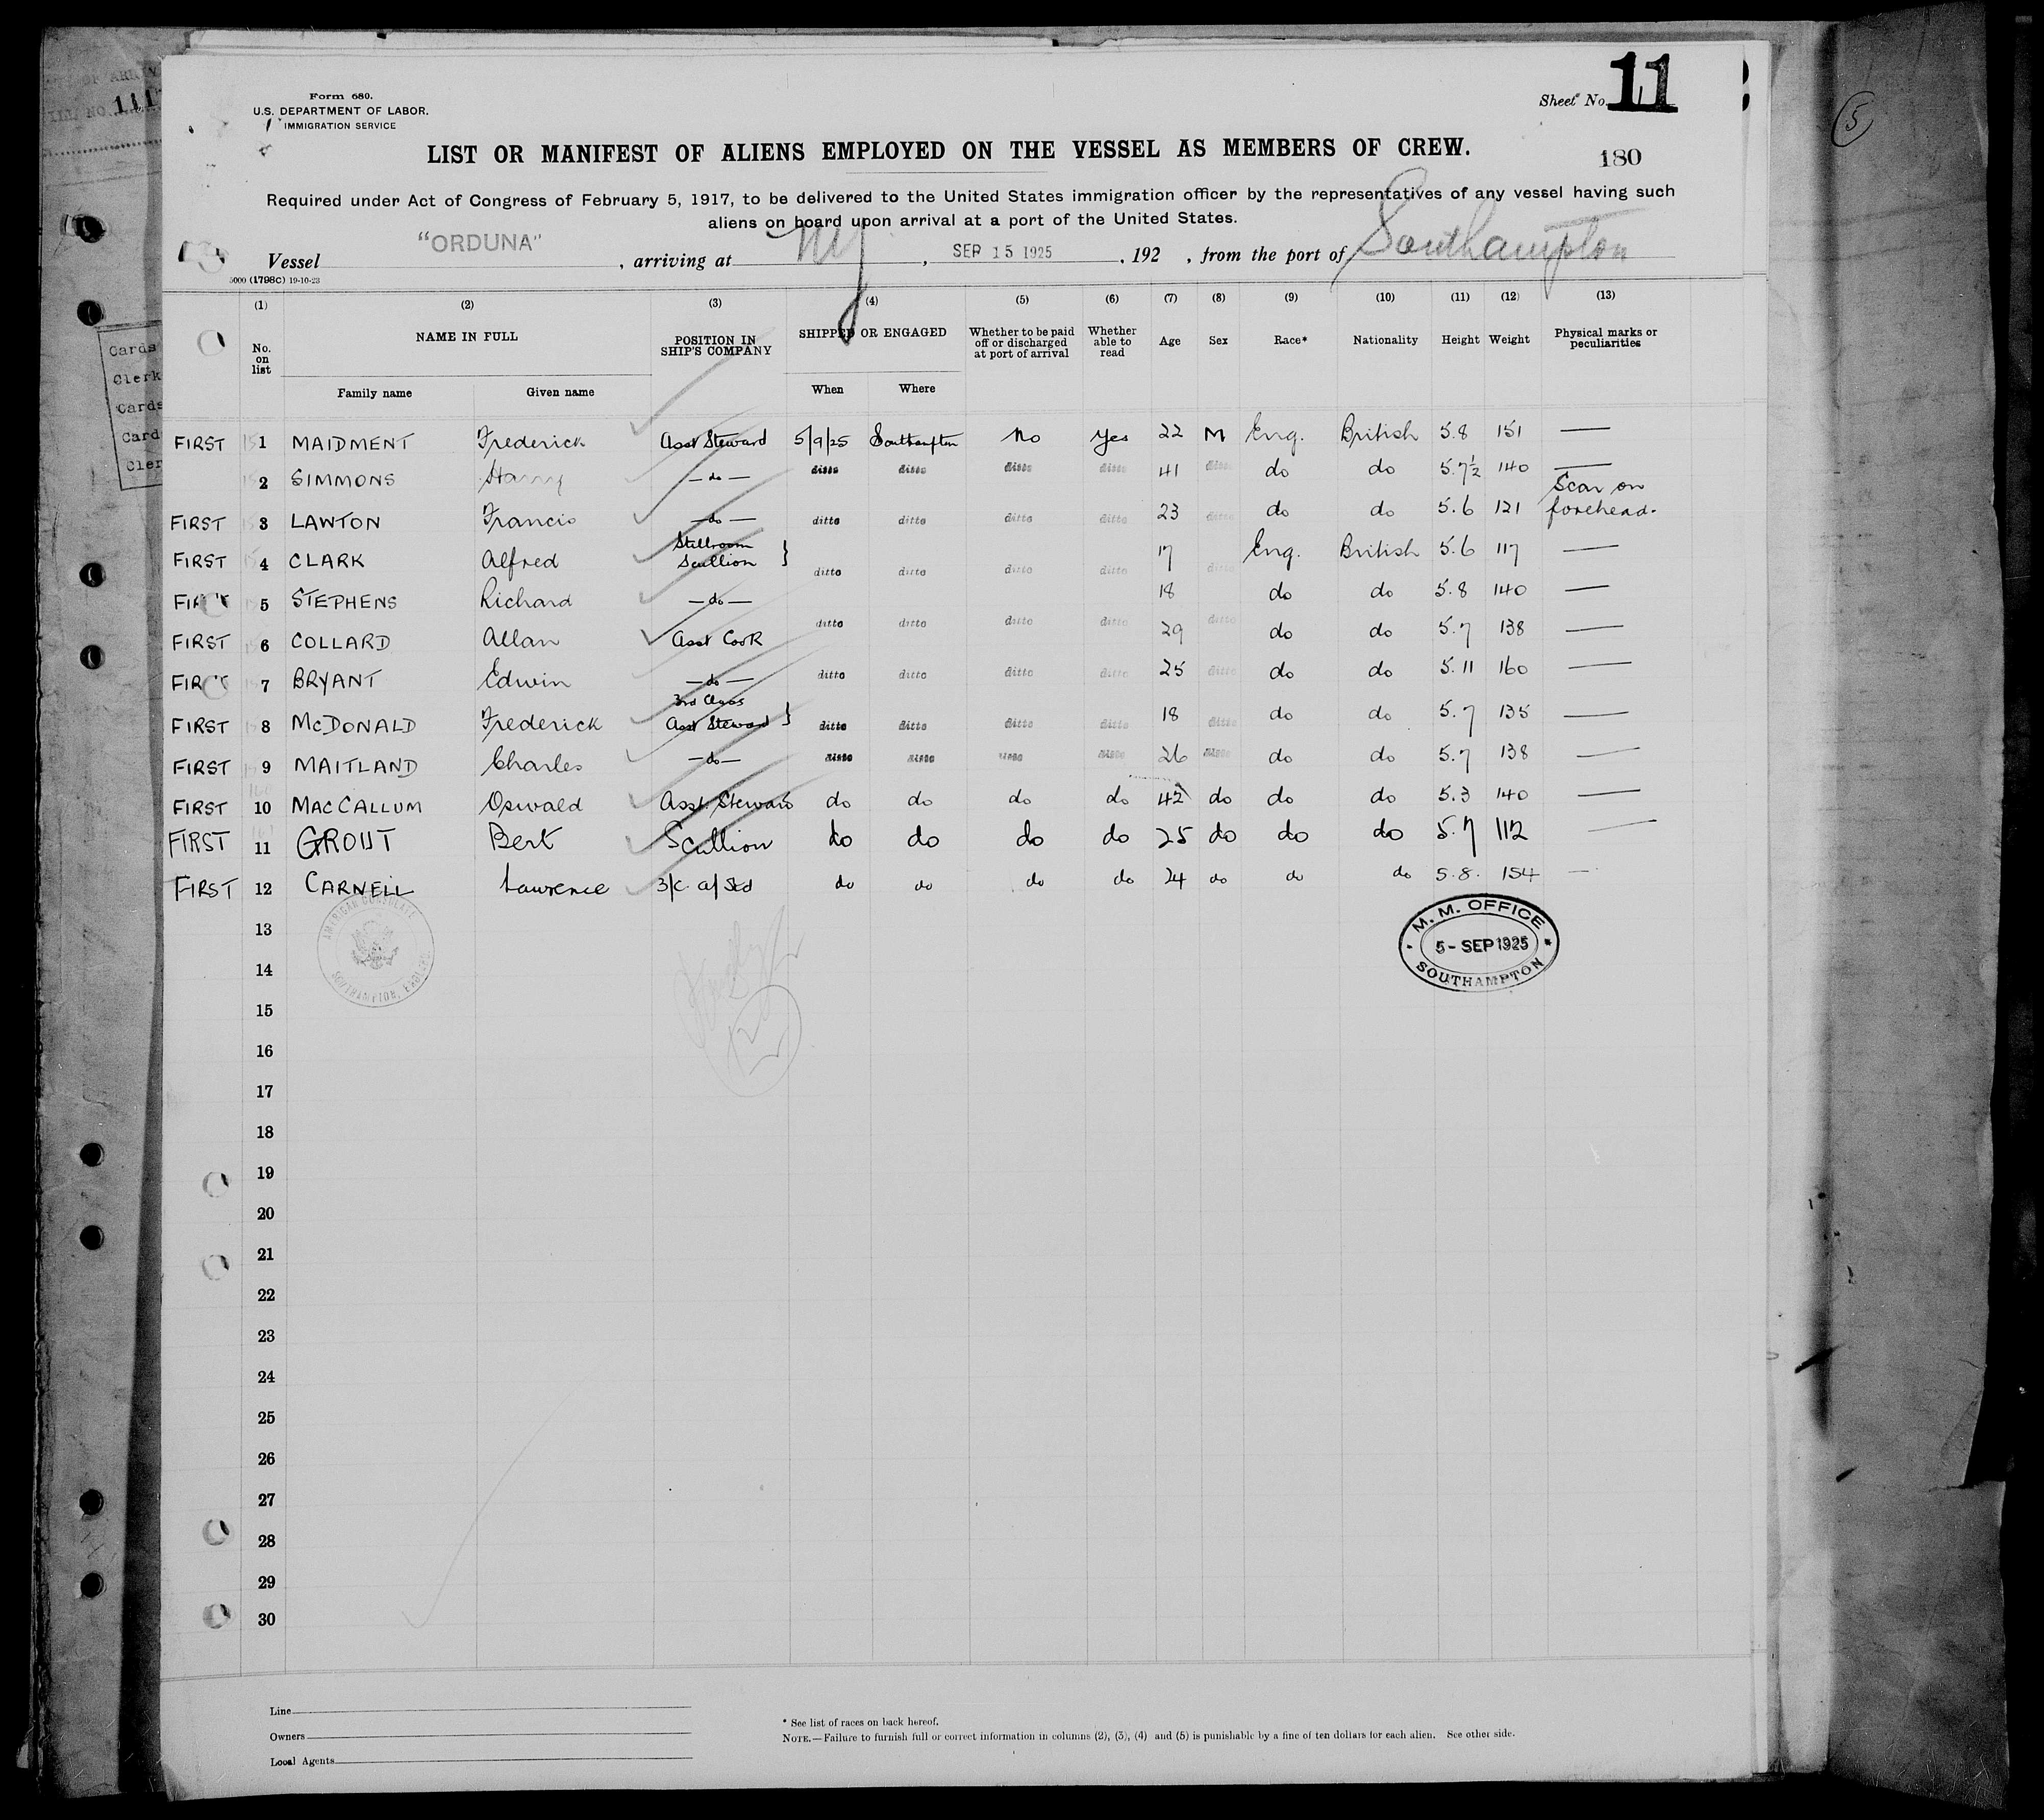 Form 680.
U.S. DEPARTMENT OF LABOR.
IMMIGRATION SERVICE
Sheet No. 11
LIST OR MANIFEST OF ALIENS EMPLOYED ON THE VESSEL AS MEMBERS OF CREW.
180
Required under Act of Congress of February 5, 1917, to be delivered to the United States immigration officer by the representatives of any vessel having such
aliens on board upon arrival at a port of the United States.
Vessel "ORDUNA", arriving at NY, SEP 15 1925, 192 , from the port of Southampton
5000 (1798C) 19-10-23
(1) (2) (3) (4) (5) (6) (7) (8) (9) (10) (11) (12) (13)
No. on list NAME IN FULL POSITION IN SHIP'S COMPANY SHIPPED OR ENGAGED Whether to be paid off or discharged at port of arrival Whether able to read Age Sex Race* Nationality Height Weight Physical marks or peculiarities
Family name Given name When Where
FIRST 1 MAIDMENT Frederick Asst Steward 5/9/25 Southampton No Yes 22 M Eng. British 5.8 151 —
2 SIMMONS Harry — do — ditto ditto ditto ditto 41 ditto do do 5.7½ 140 —
FIRST 3 LAWTON Francis — do — ditto ditto ditto ditto 23 ditto do do 5.6 121 Scar on forehead.
FIRST 4 CLARK Alfred Stillroom Scullion } ditto ditto ditto ditto 17 ditto Eng. British 5.6 117 —
FIRST 5 STEPHENS Richard — do — 18 do do 5.8 140 —
FIRST 6 COLLARD Allan Asst Cook ditto ditto ditto ditto 29 ditto do do 5.7 138 —
FIRST 7 BRYANT Edwin — do — ditto ditto ditto ditto 25 ditto do do 5.11 160 —
FIRST 8 McDONALD Frederick 3rd Class Asst Steward } ditto ditto ditto ditto 18 ditto do do 5.7 135 —
FIRST 9 MAITLAND Charles — do — ditto ditto ditto ditto 26 ditto do do 5.7 138 —
FIRST 10 MACCALLUM Oswald Asst. Steward do do do do 42 do do do 5.3 140 —
FIRST 11 GROUT Bert Scullion do do do do 25 do do do 5.7 112 —
FIRST 12 CARNELL Lawrence 3/c. a/Std do do do do 24 do do do 5.8. 154 —
AMERICAN CONSULATE
SOUTHAMPTON, ENGLAND
M. M. OFFICE
5 - SEP 1925
SOUTHAMPTON
13
14
15
16
17
18
19
20
21
22
23
24
25
26
27
28
29
30
Line
Owners
Local Agents
* See list of races on back hereof.
NOTE.—Failure to furnish full or correct information in columns (2), (3), (4) and (5) is punishable by a fine of ten dollars for each alien. See other side.
Cards
Clerk
Cards
Card
Cler
5